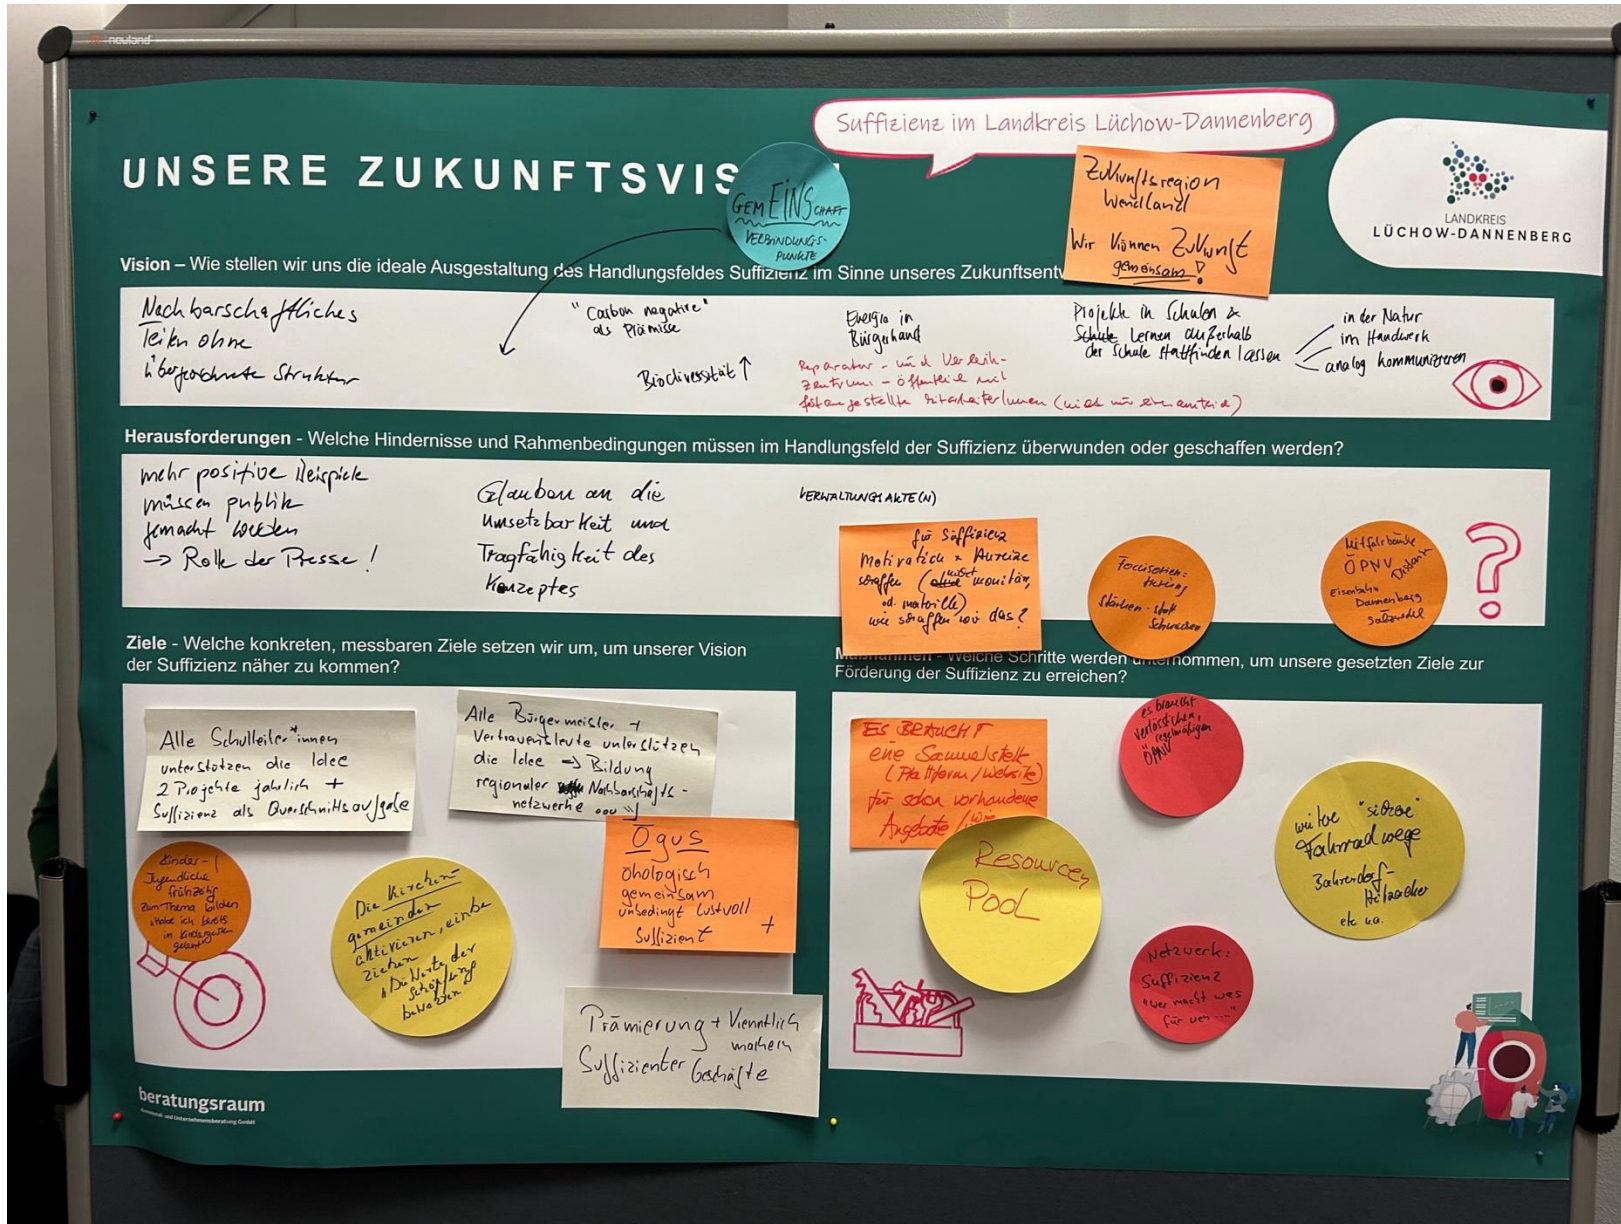 neuland
Suffizienz im Landkreis Lüchow-Dannenberg
UNSERE ZUKUNFTSVIS
GEMEINSCHAFT
VERBINDUNGS-
PUNKTE
Zukunftsregion
Wendland
Wir können Zukunft
gemeinsam!
LANDKREIS
LÜCHOW-DANNENBERG
Vision – Wie stellen wir uns die ideale Ausgestaltung des Handlungsfeldes Suffizienz im Sinne unseres Zukunftsentw
Nachbarschaftliches
Teilen ohne
übergeordnete Struktur
"Carbon negative"
als Prämisse
Biodiversität ↑
Energie in
Bürgerhand
Reparatur - und Verleih-
zentrum - öffentlich mit
festangestellte MitarbeiterInnen (nicht nur ehrenamtlich)
Projekte in Schulen &
Schule Lernen außerhalb
der Schule stattfinden lassen
in der Natur
im Handwerk
analog kommunizieren
Herausforderungen - Welche Hindernisse und Rahmenbedingungen müssen im Handlungsfeld der Suffizienz überwunden oder geschaffen werden?
mehr positive Beispiele
müssen publik
gemacht werden
→ Rolle der Presse!
Glauben an die
Umsetzbarkeit und
Tragfähigkeit des
Konzeptes
VERWALTUNGSAKTE(N)
für Suffizienz
Motivation + Anreize
schaffen (nicht monitär,
od. materille)
wie schaffen wir das?
stärken - statt
Schwächen
Mitfahrbänke
ÖPNV
Eisenbahn
Dannenberg
Salzwedel
Ziele - Welche konkreten, messbaren Ziele setzen wir um, um unserer Vision
der Suffizienz näher zu kommen?
Alle Schulleiter*innen
unterstützen die Idee
2 Projekte jährlich +
Suffizienz als Querschnittsaufgabe
Alle Bürgermeister +
Vertrauensleute unterstützen
die Idee → Bildung
regionaler Nachbarschafts-
netzwerke ...
Kinder-/
Jugendliche
frühzeitig
zum Thema bilden
"Habe ich bereits
im Kindergarten
gelernt"
Die Kirchen-
gemeinden
aktivieren, einbe
ziehen
der
Schöpfung
bewahren"
Ögus
öhologisch
gemeinsam
unbedingt lustvoll +
Suffizient
Prämierung + Kenntlich
machen
Suffizienter Geschäfte
Maßnahmen - Welche Schritte werden unternommen, um unsere gesetzten Ziele zur
Förderung der Suffizienz zu erreichen?
ES BRAUCHT
eine Sammelstelle
(Plattform/Website)
für schon vorhandene
Angebote/
Resourcen
POOL
es braucht
verlässlichen,
regelmäßigen
ÖPNV
weitere "sichere"
Fahrradwege
Bahrendorf-
Hitzacker
etc u.a.
Netzwerk:
Suffizienz
"wer macht was
für wen ..."
beratungsraum
Kommunal- und Unternehmensberatung GmbH